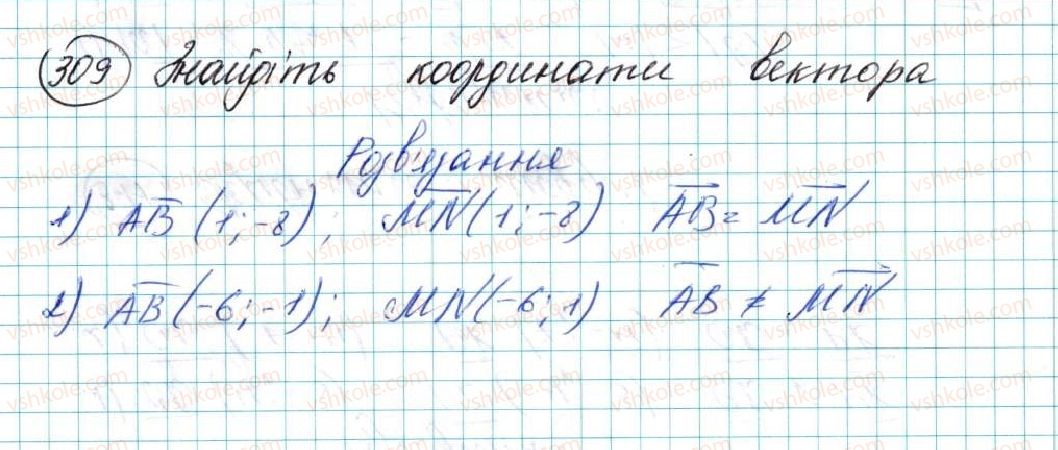 309 Знайдіть координати вектора
Розв'язання
1) AB (1; -8); MN (1; -8) AB = MN
2) AB (-6; -1); MN (-6; 1) AB ≠ MN